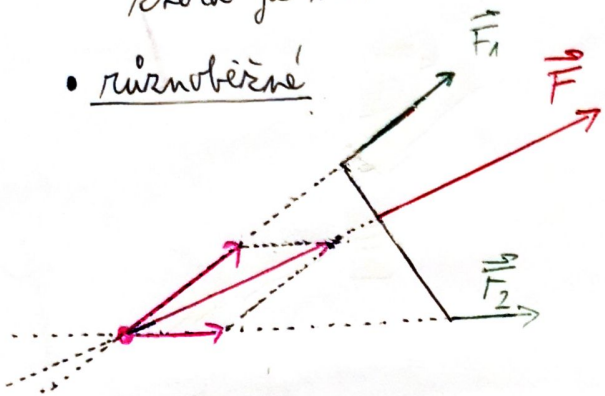 • různoběžné
F₁
F
F₂